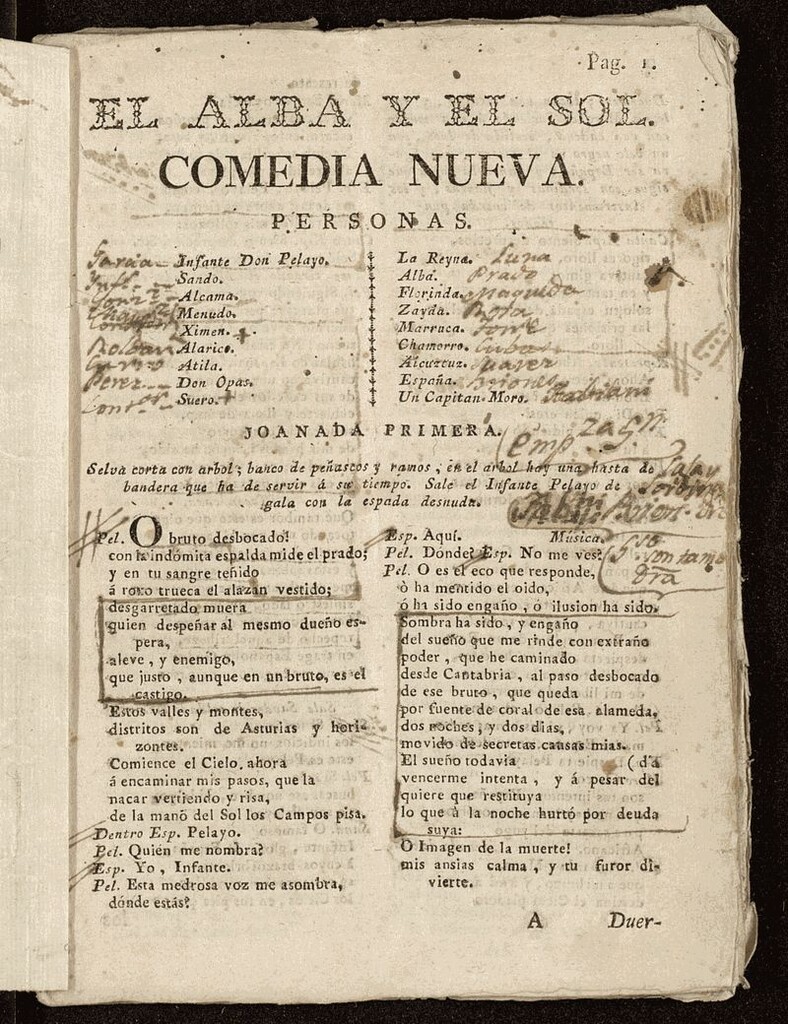 Pag. 1.
EL ALBA Y EL SOL.
COMEDIA NUEVA.
PERSONAS.
Garcia Infante Don Pelayo.
Sando.
Alcama.
Menudo.
Ximen.
Roldan Alarico.
Atila.
Perez Don Opas.
Suero.
La Reyna. Luna
Alba. Prado
Florinda. Maqueda
Zayda. Rosa
Marruca. Torre
Chamorro. Cubas
Alcuzcuz. Suarez
España. Briones
Un Capitan Moro. Fabiani
JOANADA PRIMERA.
Selva corta con arbol; banco de peñascos y ramos, en el arbol hay una hasta de
bandera que ha de servir á su tiempo. Sale el Infante Pelayo de
gala con la espada desnuda.
Pel. O bruto desbocado!
con la indómita espalda mide el prado;
y en tu sangre teñido
á roxo trueca el alazan vestido;
desgarretado muera
quien despeñar al mesmo dueño es-
pera,
aleve, y enemigo,
que justo, aunque en un bruto, es el
castigo.
Estos valles y montes,
distritos son de Asturias y hori-
zontes.
Comience el Cielo, ahora
á encaminar mis pasos, que la
nacar vertiendo y risa,
de la mano del Sol los Campos pisa.
Dentro Esp. Pelayo.
Pel. Quién me nombra?
Esp. Yo, Infante.
Pel. Esta medrosa voz me asombra,
dónde estás?
Esp. Aquí. Música.
Pel. Dónde? Esp. No me ves?
Pel. O es el eco que responde,
ò ha mentido el oido,
ó ha sido engaño, ó ilusion ha sido.
Sombra ha sido, y engaño
del sueño que me rinde con extraño
poder, que he caminado
desde Cantabria, al paso desbocado
de ese bruto, que queda
por fuente de coral de esa alameda,
dos noches, y dos dias,
movido de secretas causas mias.
El sueño todavia (da
vencerme intenta, y á pesar del
quiere que restituya
lo que à la noche hurtó por deuda
suya:
O Imagen de la muerte!
mis ansias calma, y tu furor di-
vierte.
A Duer-